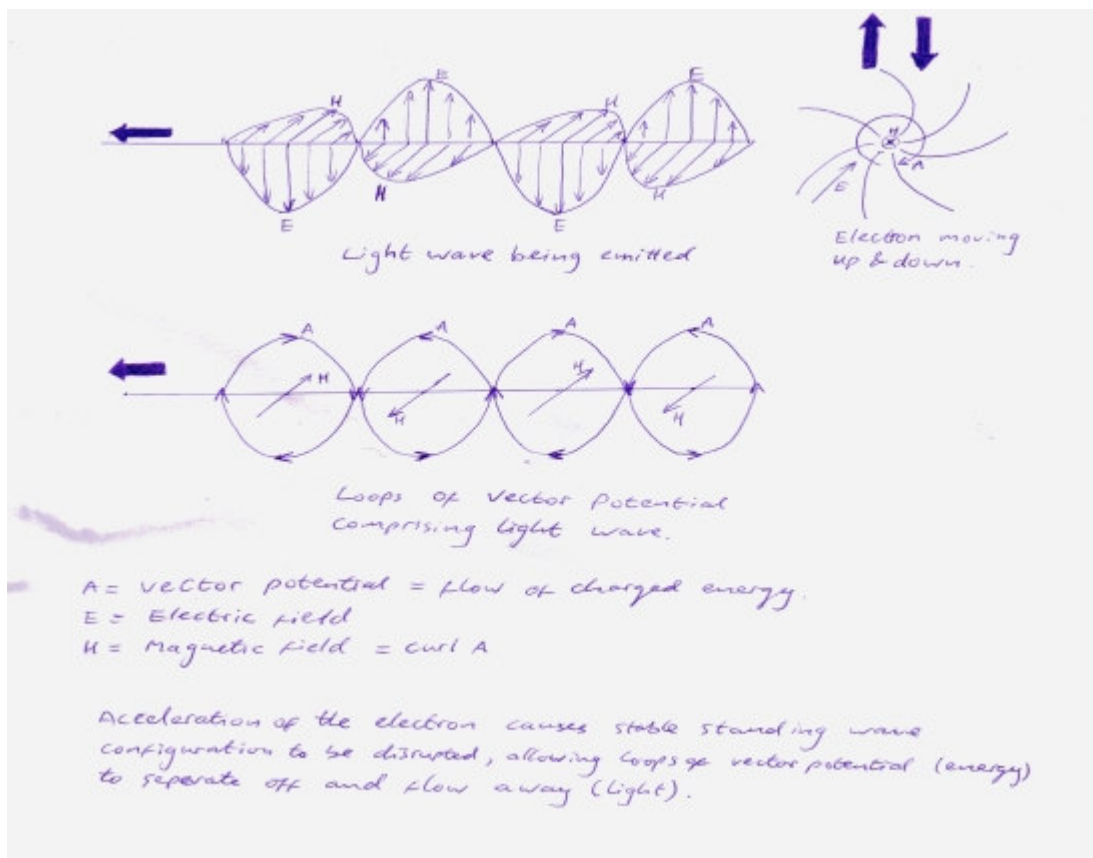 E
E
H
H
H
H
E
E
Light wave being emitted
H
A
E
Electron moving
up & down.
A
A
A
A
H
H
H
H
Loops of vector potential
comprising light wave.
A = vector potential = flow of charged energy.
E = Electric field
H = Magnetic field = curl A
Acceleration of the electron causes stable standing wave
configuration to be disrupted, allowing loops of vector potential (energy)
to seperate off and flow away (light).